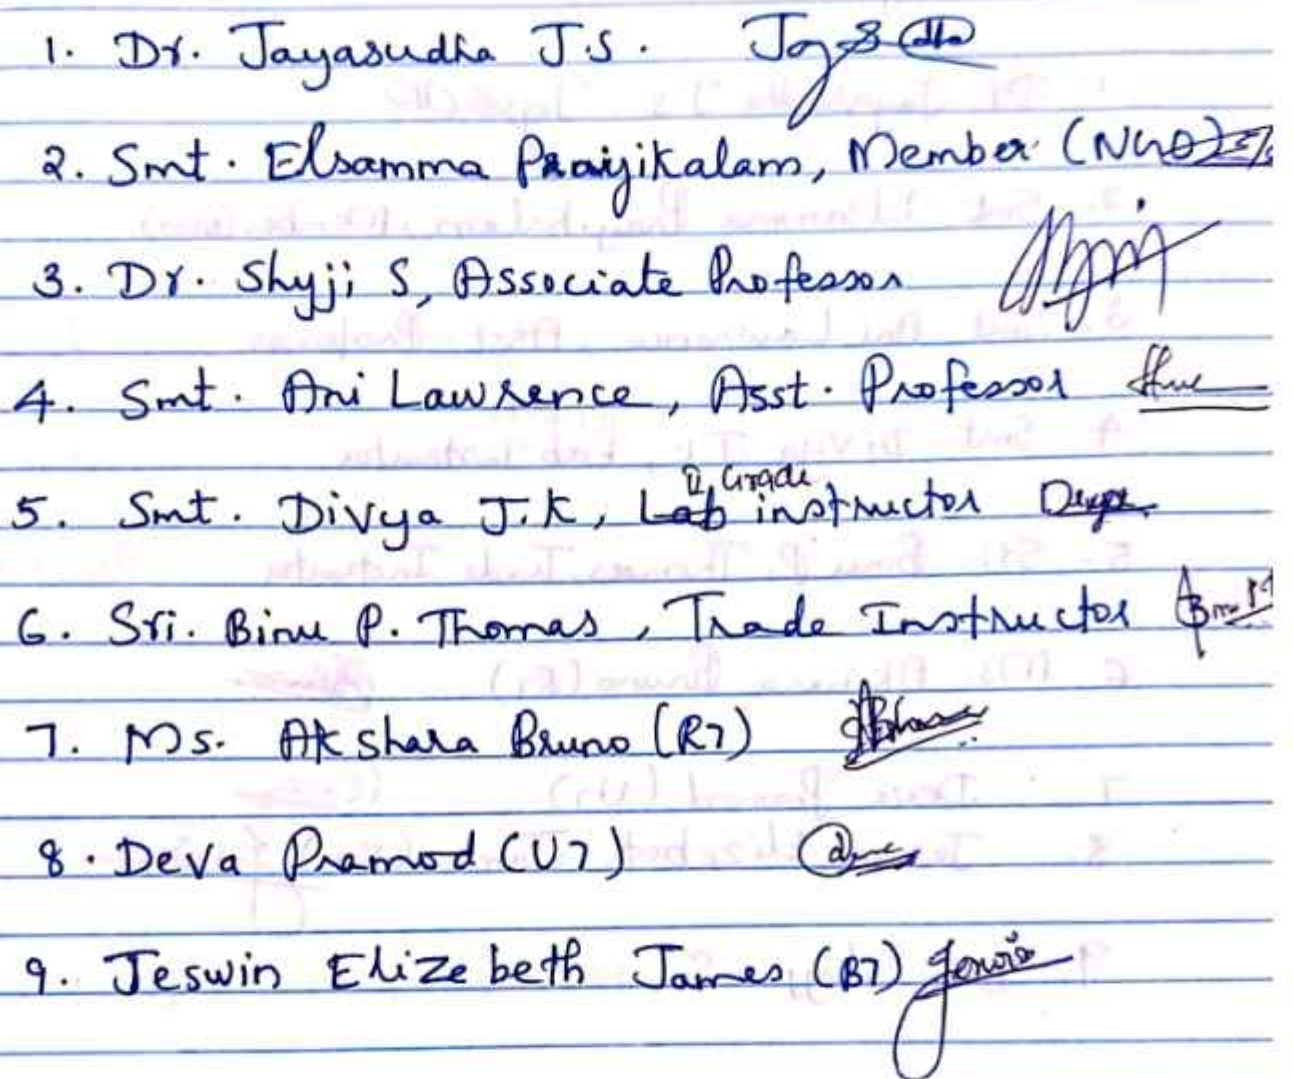 1. Dr. Jayasudha J.S.
2. Smt. Elsamma Praiyikalam, Member (NGO)
3. Dr. Shyji S, Associate Professor
4. Smt. Ani Lawrence, Asst. Professor
II Grade
5. Smt. Divya J.K, instructor
6. Sri. Binu P. Thomas, Trade Instructor
7. Ms. Akshara Bruno (R7)
8. Deva Pramod (U7)
9. Jeswin Elizebeth James (B7)